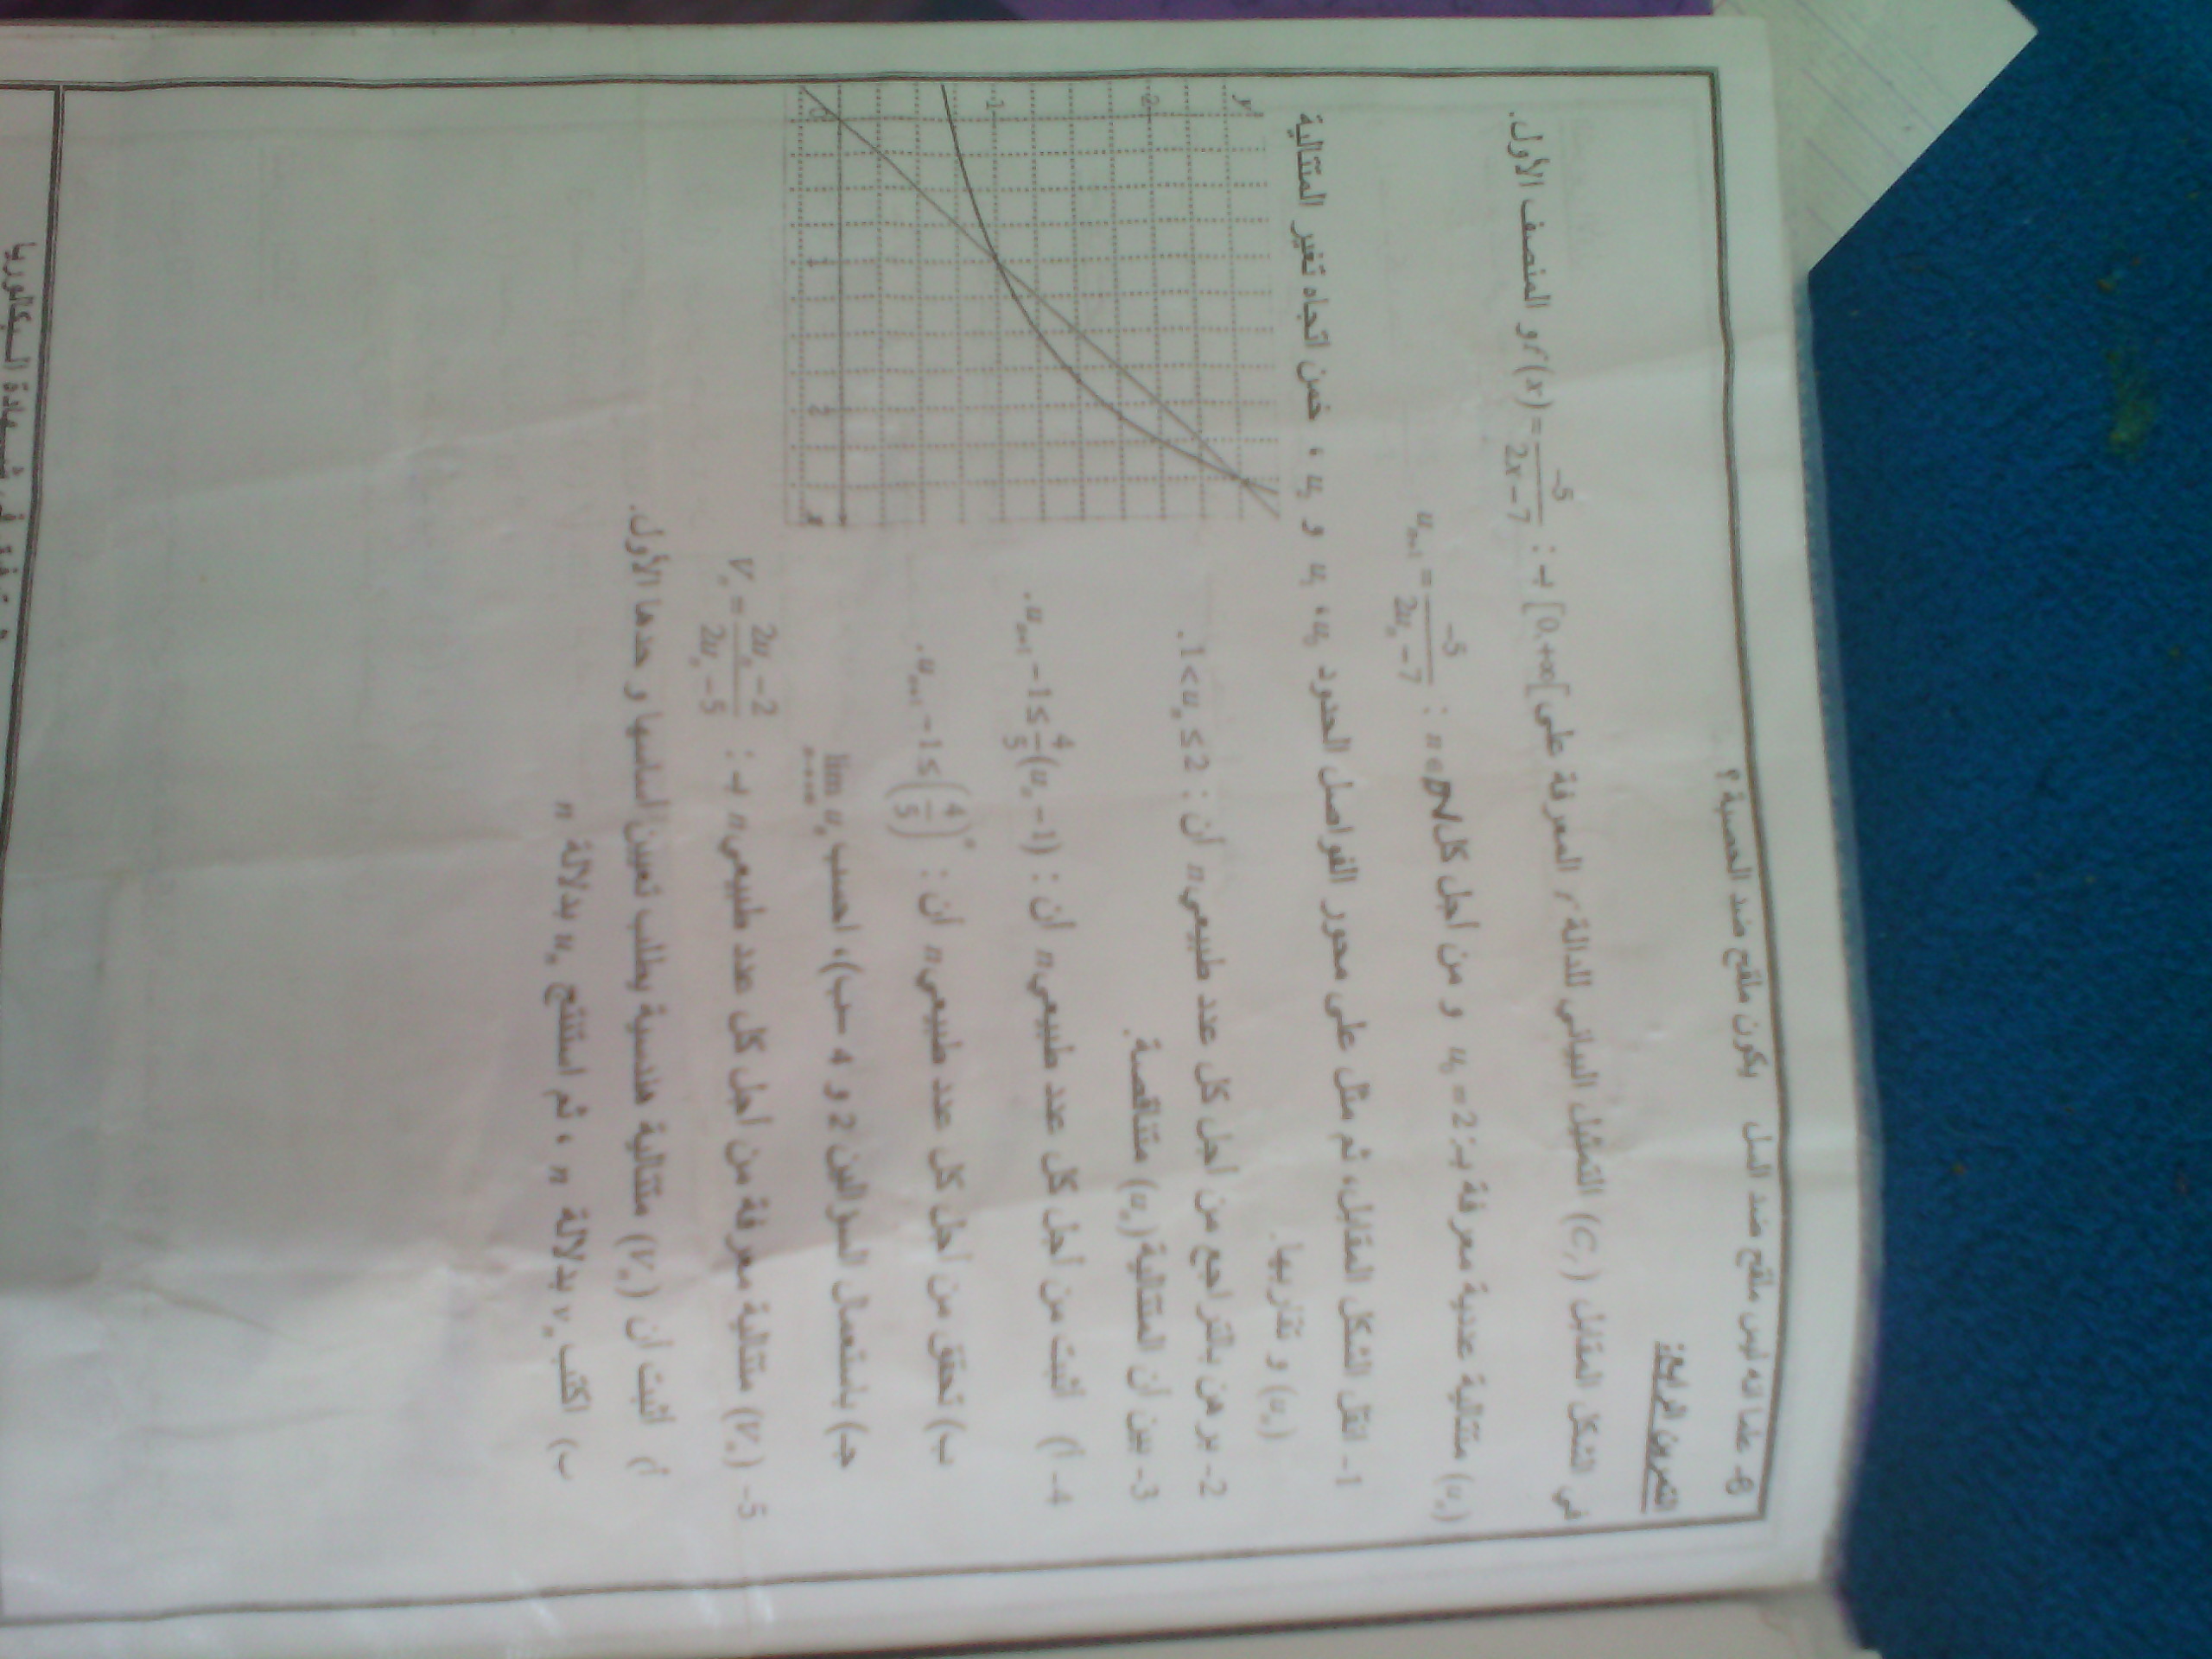 8- علما أنه ليس ملقح ضد السل يكون ملقح ضد الحصبة ؟
التمرين الرابع:
في الشكل المقابل (C_f) التمثيل البياني للدالة f المعرفة على [0,+∞[ بـ : f(x)=\frac{-5}{2x-7} و المنصف الأول.
(u_n) متتالية عددية معرفة بـ: u_0=2 و من أجل كل n∈IN : u_{n+1}=\frac{-5}{2u_n-7}
1- انقل الشكل المقابل، ثم مثل على محور الفواصل الحدود u_0، u_1 و u_2 ، خمن اتجاه تغير المتتالية
(u_n) و تقاربها.
2- برهن بالتراجع من أجل كل عدد طبيعي n أن : 1<u_n≤2.
3- بين أن المتتالية (u_n) متناقصة.
4- أ) أثبت من أجل كل عدد طبيعي n أن : u_{n+1}-1≤\frac{4}{5}(u_n-1).
ب) تحقق من أجل كل عدد طبيعي n أن : u_{n+1}-1≤(\frac{4}{5})^n.
جـ) باستعمال السؤالين 2 و 4 -ب)، احسب \lim_{n→+∞} u_n
5- (V_n) متتالية معرفة من أجل كل عدد طبيعي n بـ : V_n=\frac{2u_n-2}{2u_n-5}
أ) أثبت أن (V_n) متتالية هندسية يطلب تعيين أساسها و حدها الأول.
ب) اكتب v_n بدلالة n ، ثم استنتج u_n بدلالة n
y
2
1
0
1
2
x